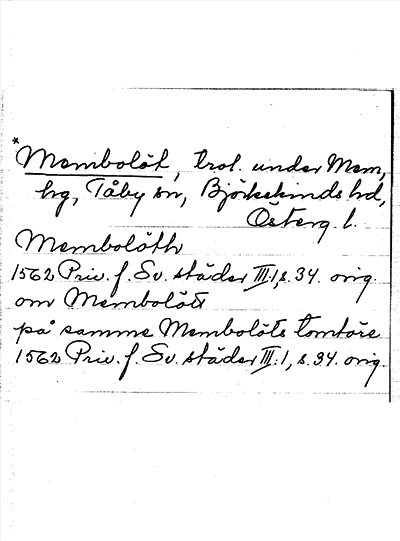 *Membolöt, trol. under Mem,
hg, Tåby sn, Björkekinds hd,
Österg. l.
Membolöth
1562 Priv. f. Sv. städer III:1, s. 34. orig.
om Membolött
på samme Membolöts tomtöre
1562 Priv. f. Sv. städer III:1, s. 34. orig.